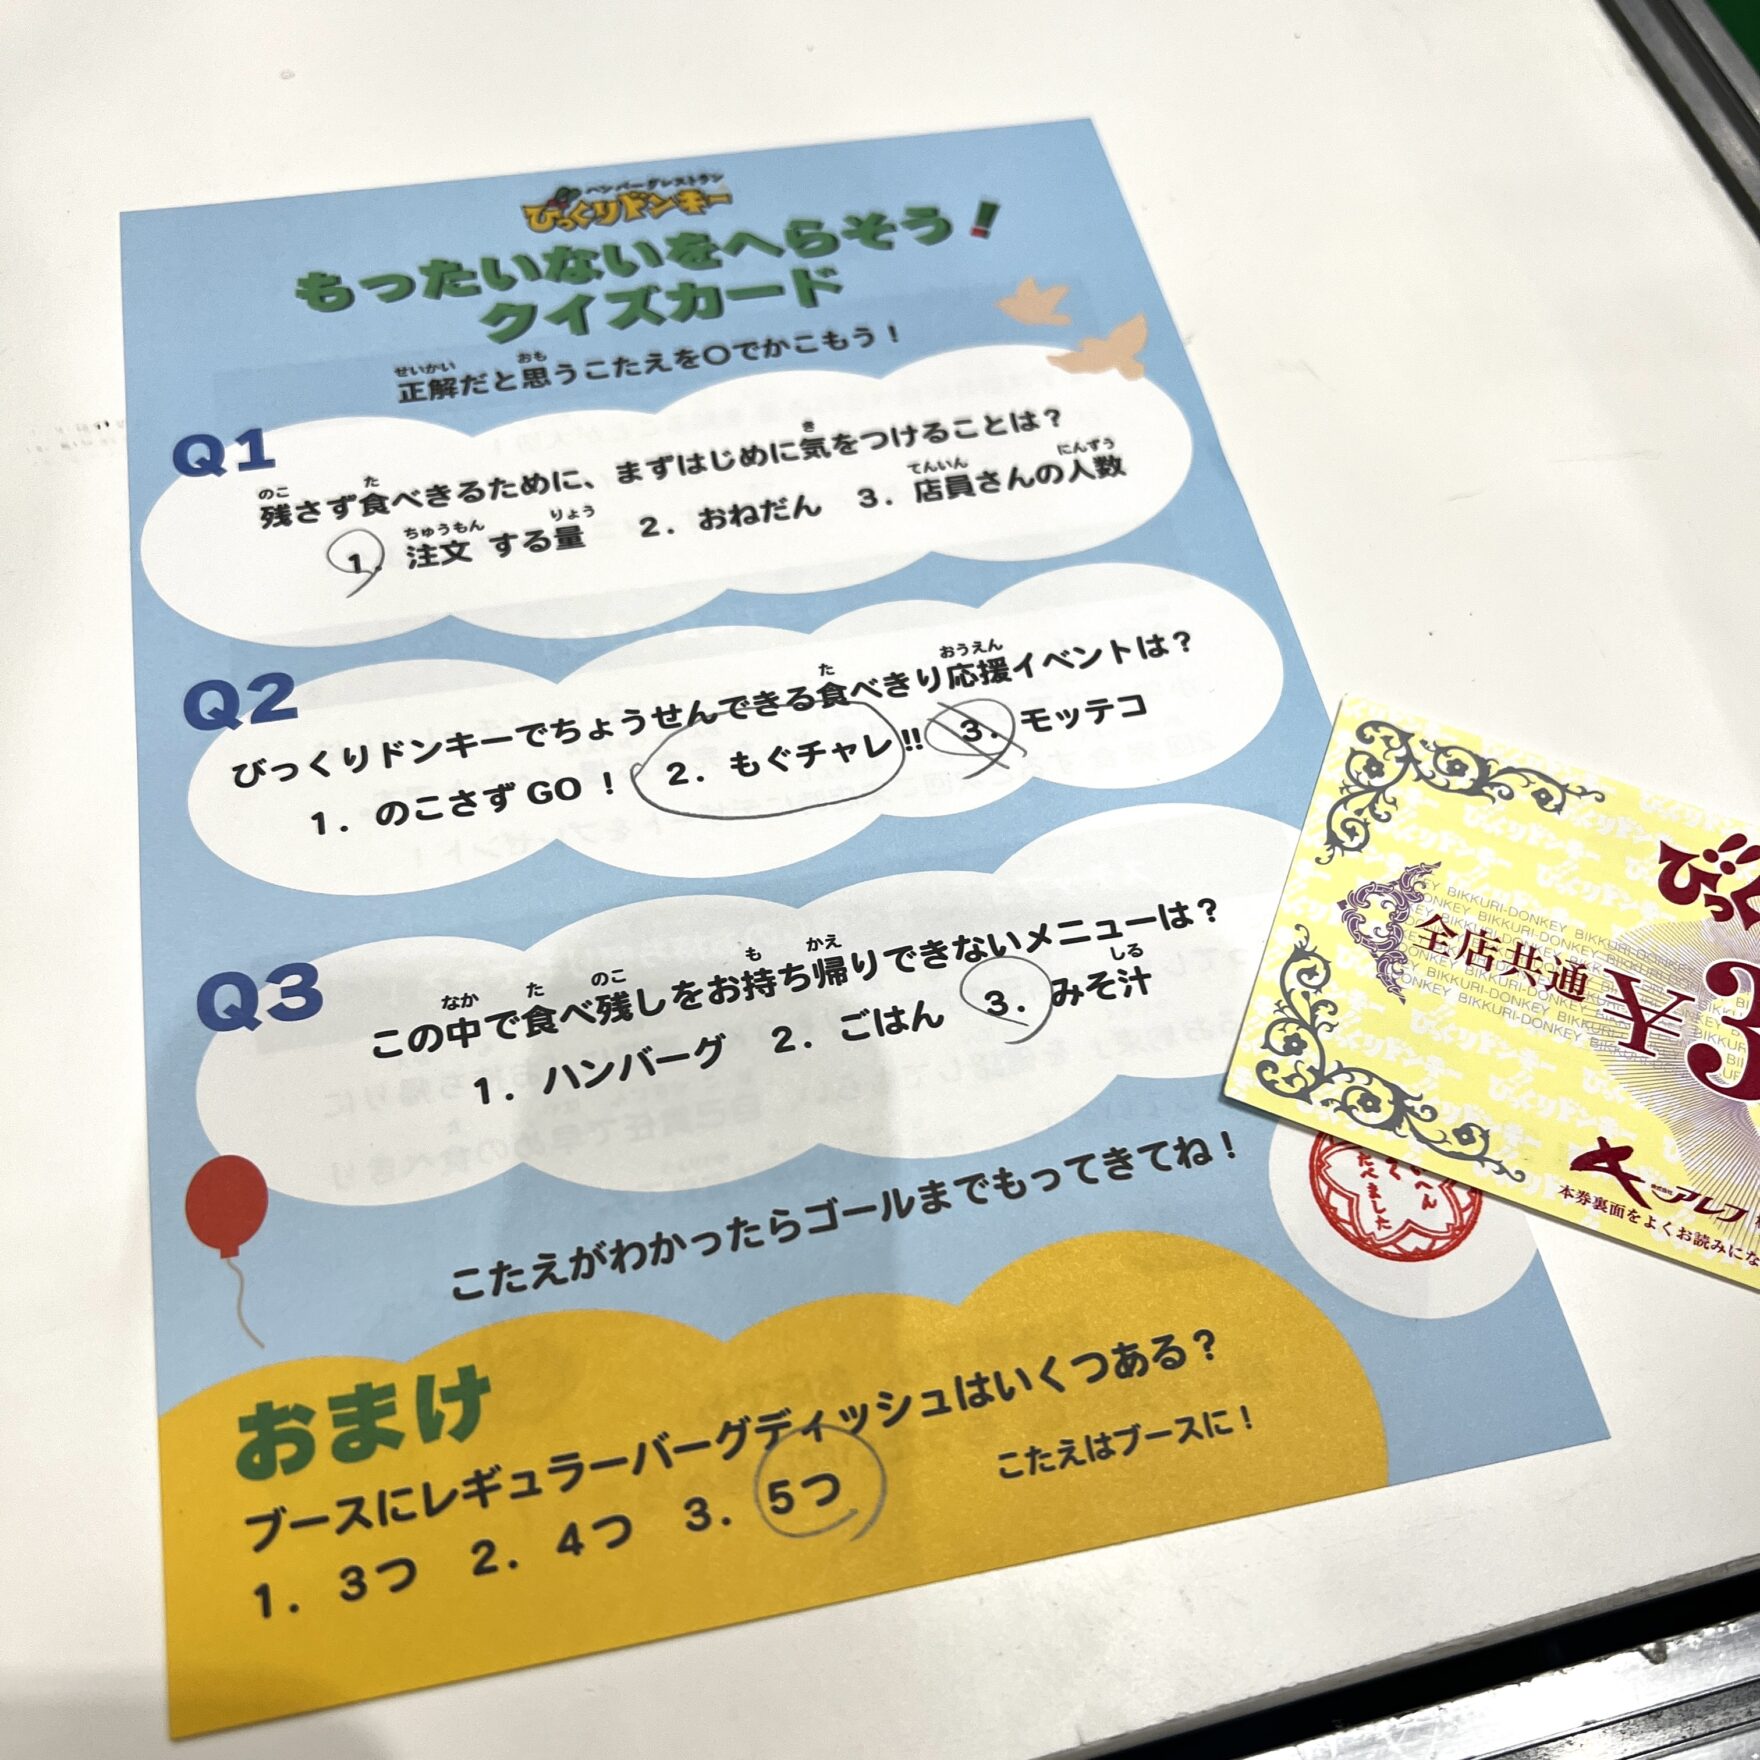 ハンバーグレストラン
びっくりドンキー
もったいないをへらそう!
クイズカード
正解だと思うこたえを〇でかこもう!
せいかい おも
Q1
残さず食べきるために、まずはじめに気をつけることは?
のこ た き
1. 注文 する量 2. おねだん 3. 店員さんの人数
ちゅうもん りょう てんいん にんずう
Q2
びっくりドンキーでちょうせんできる食べきり応援イベントは?
た おうえん
1. のこさず GO ! 2. もぐチャレ!! 3. モッテコ
Q3
この中で食べ残しをお持ち帰りできないメニューは?
なか た のこ も かえ
1. ハンバーグ 2. ごはん 3. みそ汁
しる
こたえがわかったらゴールまでもってきてね!
おまけ
ブースにレギュラーバーグディッシュはいくつある?
1. 3つ 2. 4つ 3. 5つ
こたえはブースに!
たべました
びっく
全店共通
¥3
BIKKURI-DONKEY
株式会社アレフ
本券裏面をよくお読みにな